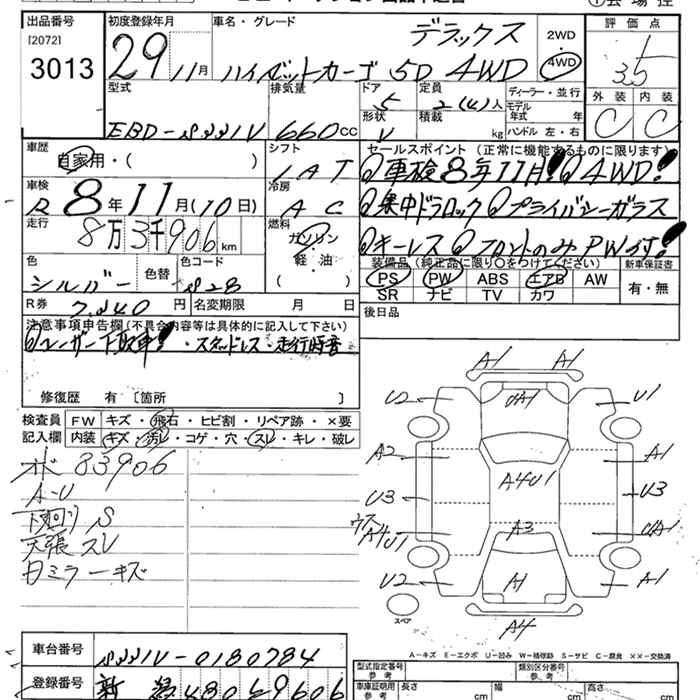 出品番号
[2072]
3013
初度登録年月
29 11月
車名・グレード
デラックス
ハイゼットカーゴ 5D 4WD
2WD
4WD
評価点
3.5
外装 内装
C C
型式
EBD-S331V
排気量
660 CC
ドア
5
形状
V
定員
2(4)人
積載
kg
ディーラー・並行
モデル年式 年
ハンドル 左・右
車歴
自家用・( )
シフト
IAT
セールスポイント (正常に機能するものに限ります)
車検8年11月! 4WD!
集中ドアロック プライバシーガラス
キーレス フロントのみPWです!
車検
R 8年11月(10日)
冷房
AC
走行
8万3千906km
燃料
ガソリン
軽・油
( )
色
シルバー
色替
色コード
S28
装備品(純正品に限り○をつけてください)
PS PW ABS エアB AW
SR ナビ TV カワ
新車保証書
有・無
R券
7,240円
名変期限 月 日
後日品
注意事項申告欄(不具合内容等は具体的に記入して下さい)
ユーザー下取車!・スタッドレス・走行時音
修復歴 有〔箇所 〕
検査員
記入欄
FW キズ・飛石・ヒビ割・リペア跡・×要
内装 キズ・汚レ・コゲ・穴・スレ・キレ・破レ
83906
A-U
下回りS
天張スレ
ミラーキズ
A1 A1
U2 U1
A1
A2 A1
A4U1
U3 U3
A3
A4U1
U2 A1 A1
A4
スペア
A-キズ E-エクボ U-凹み W-補修跡 S-サビ C-腐食 ××-交換済
車台番号
S331V-0180784
登録番号
480 69606
型式指定番号
参考
類別区分番号
参考
車庫証明用
参考
長さ cm 幅 cm 高さ cm